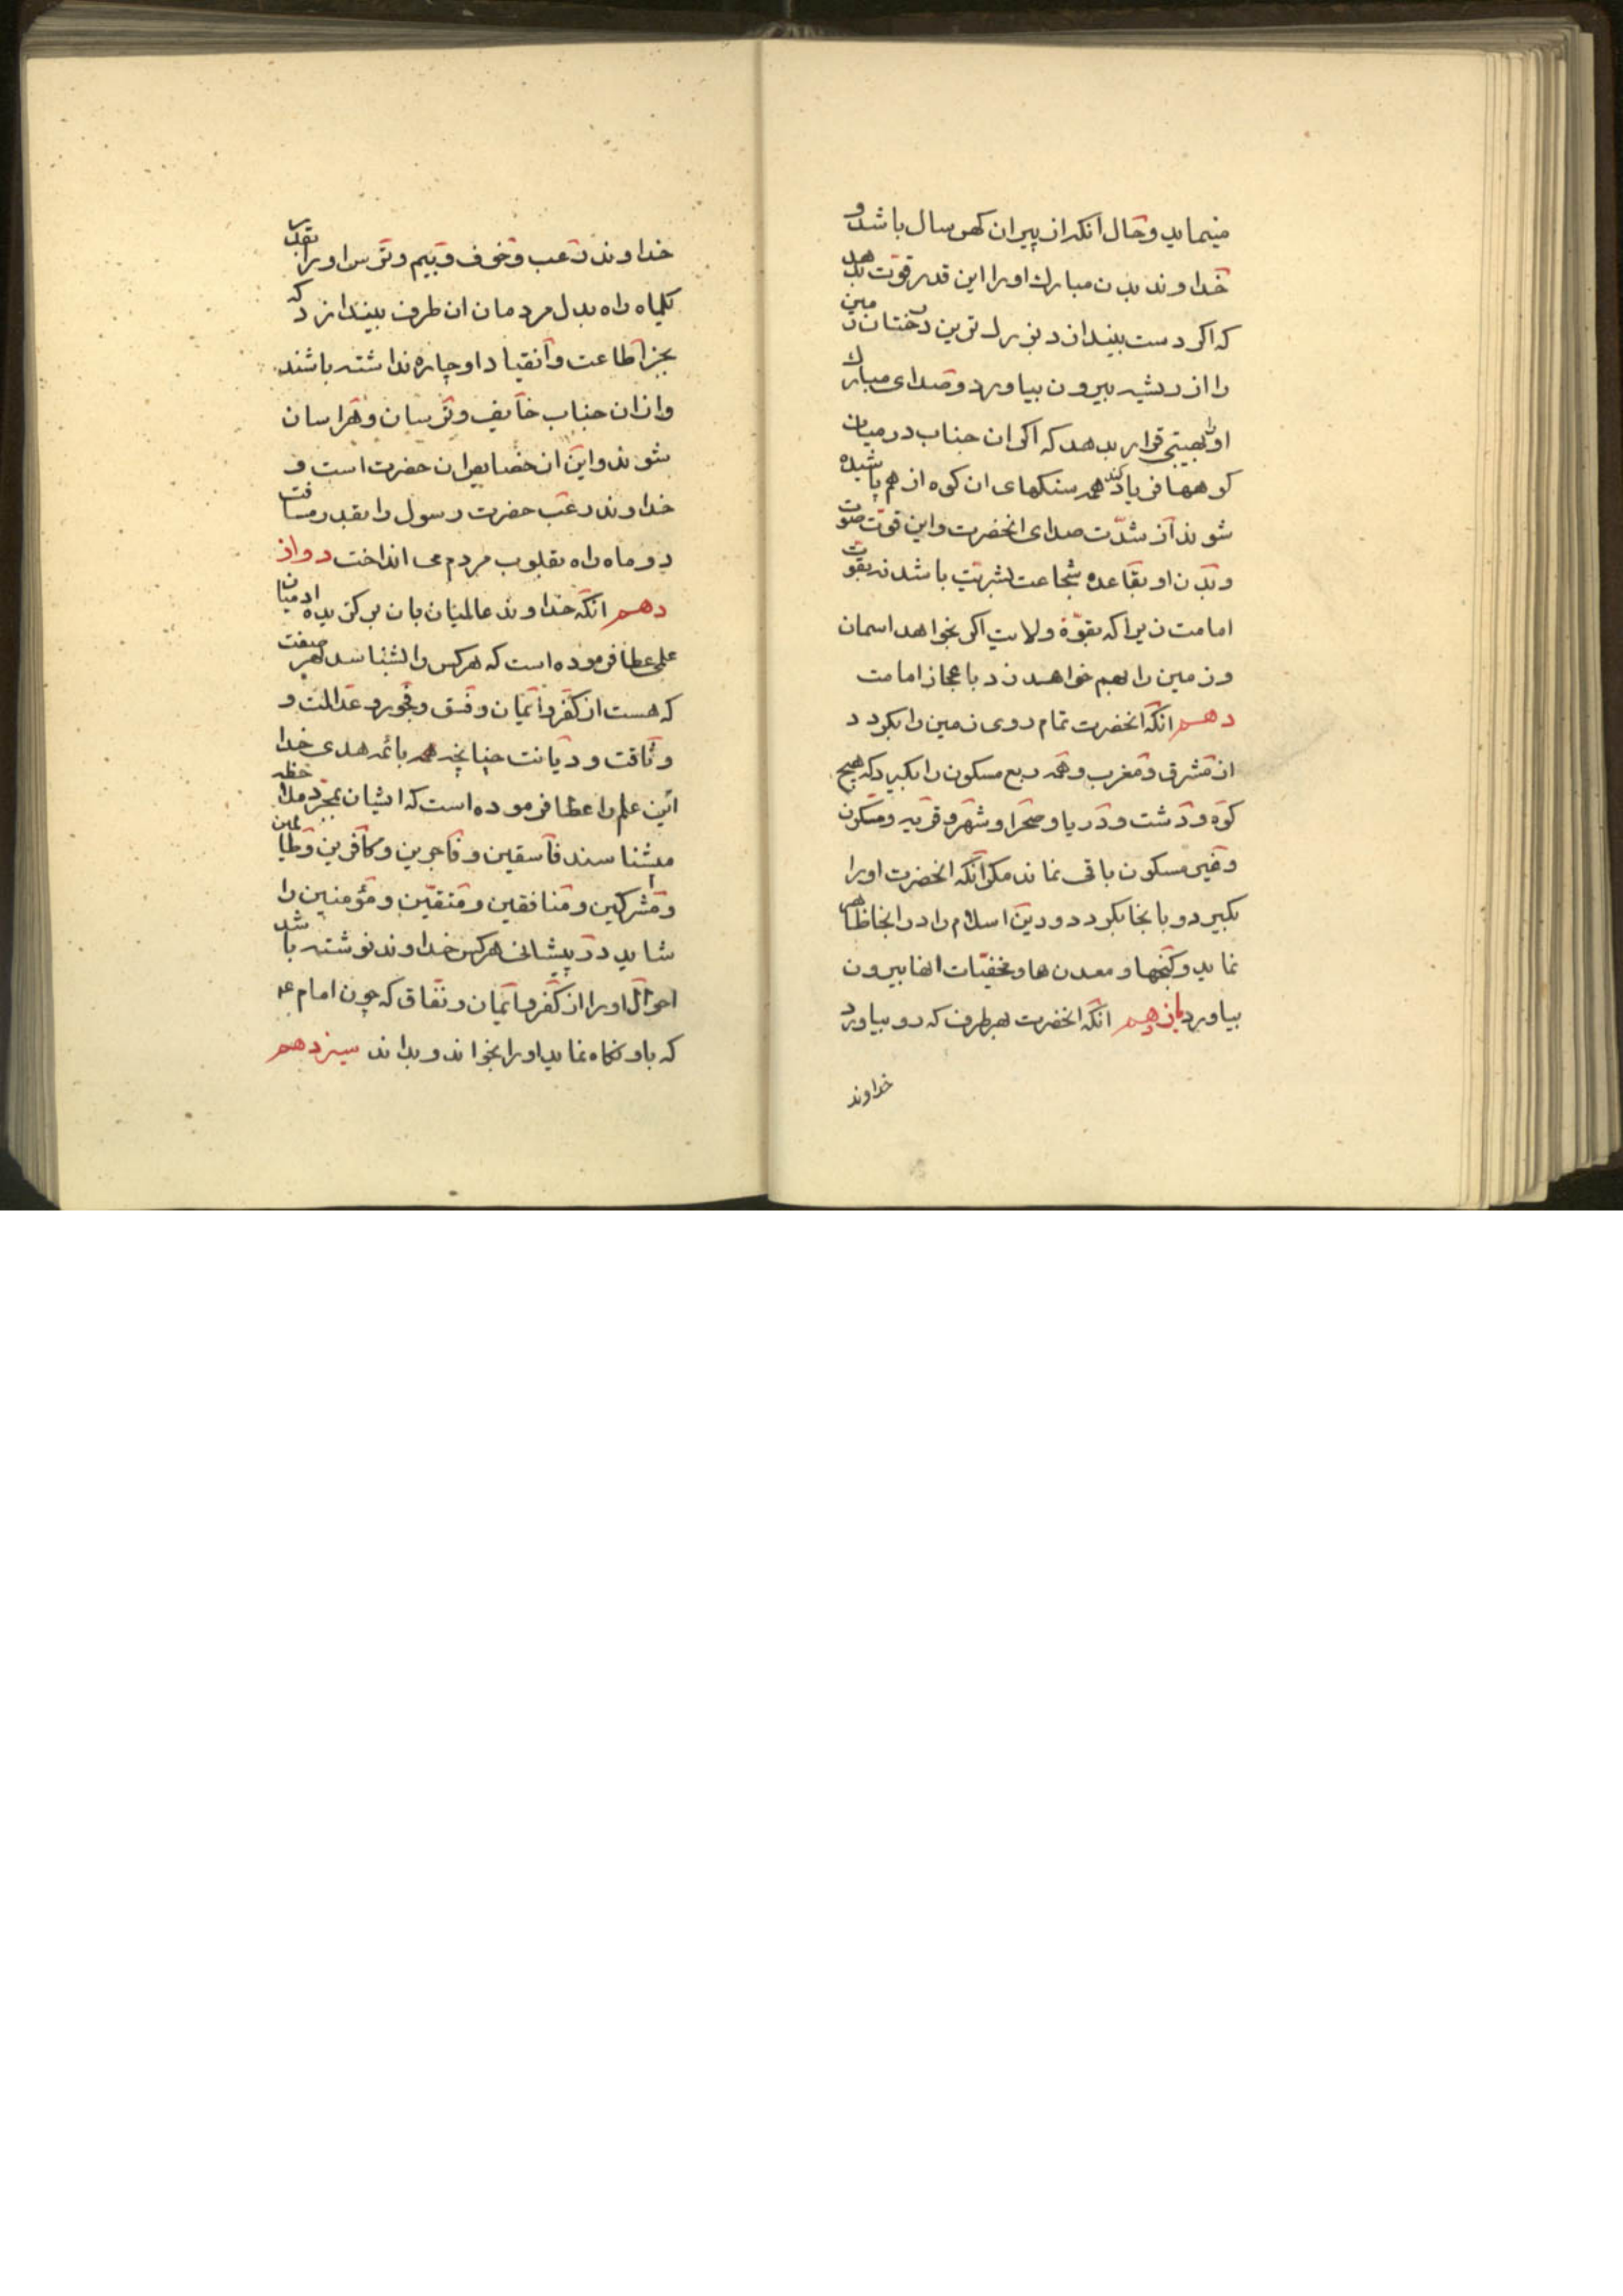 مینماید و حال آنکه از پیران کهن سال باشد و
خداوند بدن مبارک او را این قدر قوّت بدهد
که اکر دست بیندازد بزرک ترین درختان زمین
را از ریشه بیرون بیاورد و صدای مبارک
او را بهیبتی قرار بدهد که اکر ان جناب در میان
کوهها فریاد کند همه سنکهای ان کوه از هم پاشیده
شوند از شدّت صدای انحضرت و این قوّت صوت
و بدن او بقاعده شجاعت بشریّت باشد نه بقوّت
امامت زیرا که بقوّة ولایت اکر بخواهد اسمان
و زمین را بهم خواهد زد باعجاز امامت
دهم انکه انحضرت تمام روی زمین را بکردد
از مشرق و مغرب و همه ربع مسکون را بکیرد که هیچ
کوه و دشت و دریا و صحرا و شهر و قریه و مسکون
و غیر مسکون باقی نماند مکر آنکه انحضرت او را
بکیرد و بانجا بکردد و دین اسلام را در انجا ظاهر
نماید و کنجها و معدن ها و مخفیّات انها بیرون
بیاورد یازدهم انکه انحضرت بهر طرف که رو بیاورد
خداوند
خداوند رعب و خوف و بیم و ترس او را بقدر
یکماه راه بدل مردمان ان طرف بیندازد که
بجز اطاعت و انقیاد او چاره نداشته باشند
و از ان جناب خایف و ترسان و هراسان
شوند و این از خصایص ان حضرت است و
خداوند رعب حضرت رسول را بقدر مسافت
دو ماه راه بقلوب مردم می انداخت دواز
دهم انکه خداوند عالمیان بان برکزیده ادمیان
علمی عطا فرموده است که هر کس را بشناسد بهر صفت
که هست از کفر و ایمان و فسق و فجور و عدالت و
وثاقت و دیانت چنانچه همه بائمه هدی خدا
این علم را عطا فرموده است که ایشان بمجرّد ملاحظه
میشناسند فاسقین و فاجرین و کافرین و ظالمین
و مشرکین و منافقین و متقیّن و مؤمنین را
شاید در پیشانی هر کس خداوند نوشته باشد
احوال او را از کفر و ایمان و نفاق که چون امام ع
که باو نکاه نماید او را بخواند و بداند سیزدهم